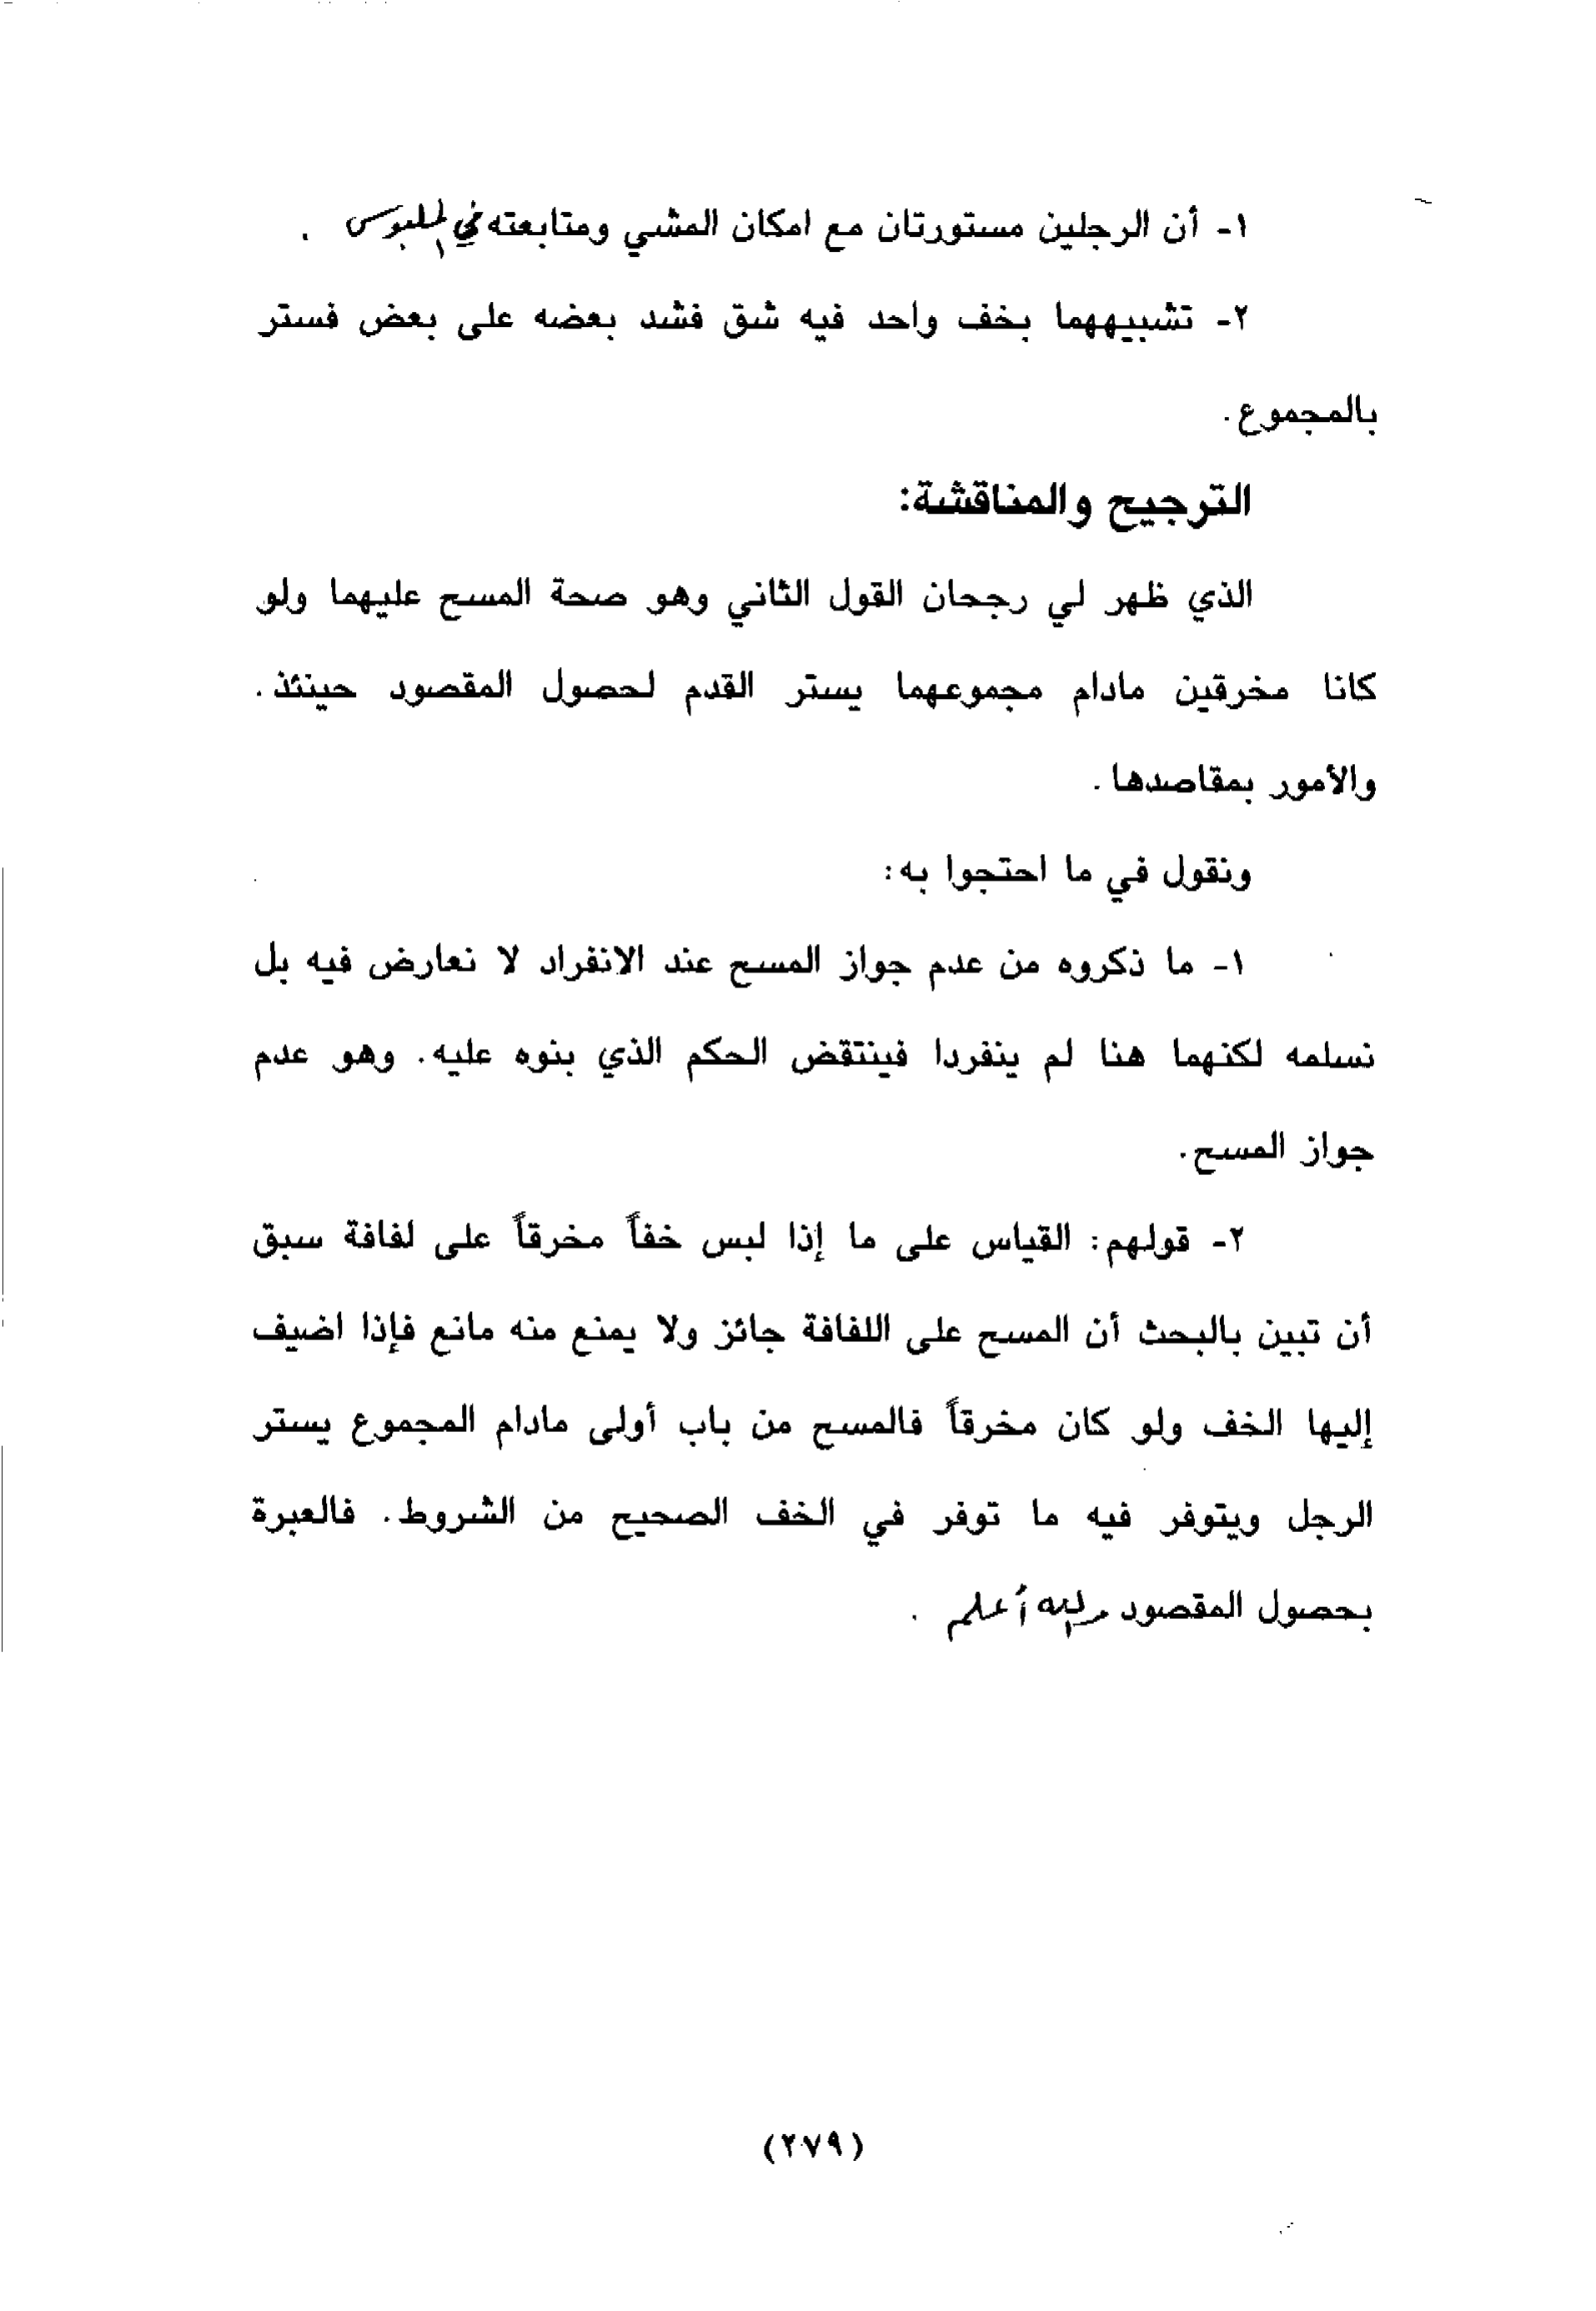 ١- أن الرجلين مستورتان مع امكان المشي ومتابعته في الملبوس .
٢- تشبيههما بخف واحد فيه شق فشد بعضه على بعض فستر
بالمجموع .
الترجيح والمناقشة:
الذي ظهر لي رجحان القول الثاني وهو صحة المسح عليهما ولو
كانا مخرقين مادام مجموعهما يستر القدم لحصول المقصود حينئذ .
والأمور بمقاصدها .
ونقول في ما احتجوا به :
١- ما ذكروه من عدم جواز المسح عند الانفراد لا نعارض فيه بل
نسلمه لكنهما هنا لم ينفردا فينتقض الحكم الذي بنوه عليه . وهو عدم
جواز المسح .
٢- قولهم : القياس على ما إذا لبس خفاً مخرقاً على لفافة سبق
أن تبين بالبحث أن المسح على اللفافة جائز ولا يمنع منه مانع فإذا اضيف
إليها الخف ولو كان مخرقاً فالمسح من باب أولى مادام المجموع يستر
الرجل ويتوفر فيه ما توفر في الخف الصحيح من الشروط . فالعبرة
بحصول المقصود والله أعلم .
(٢٧٩)